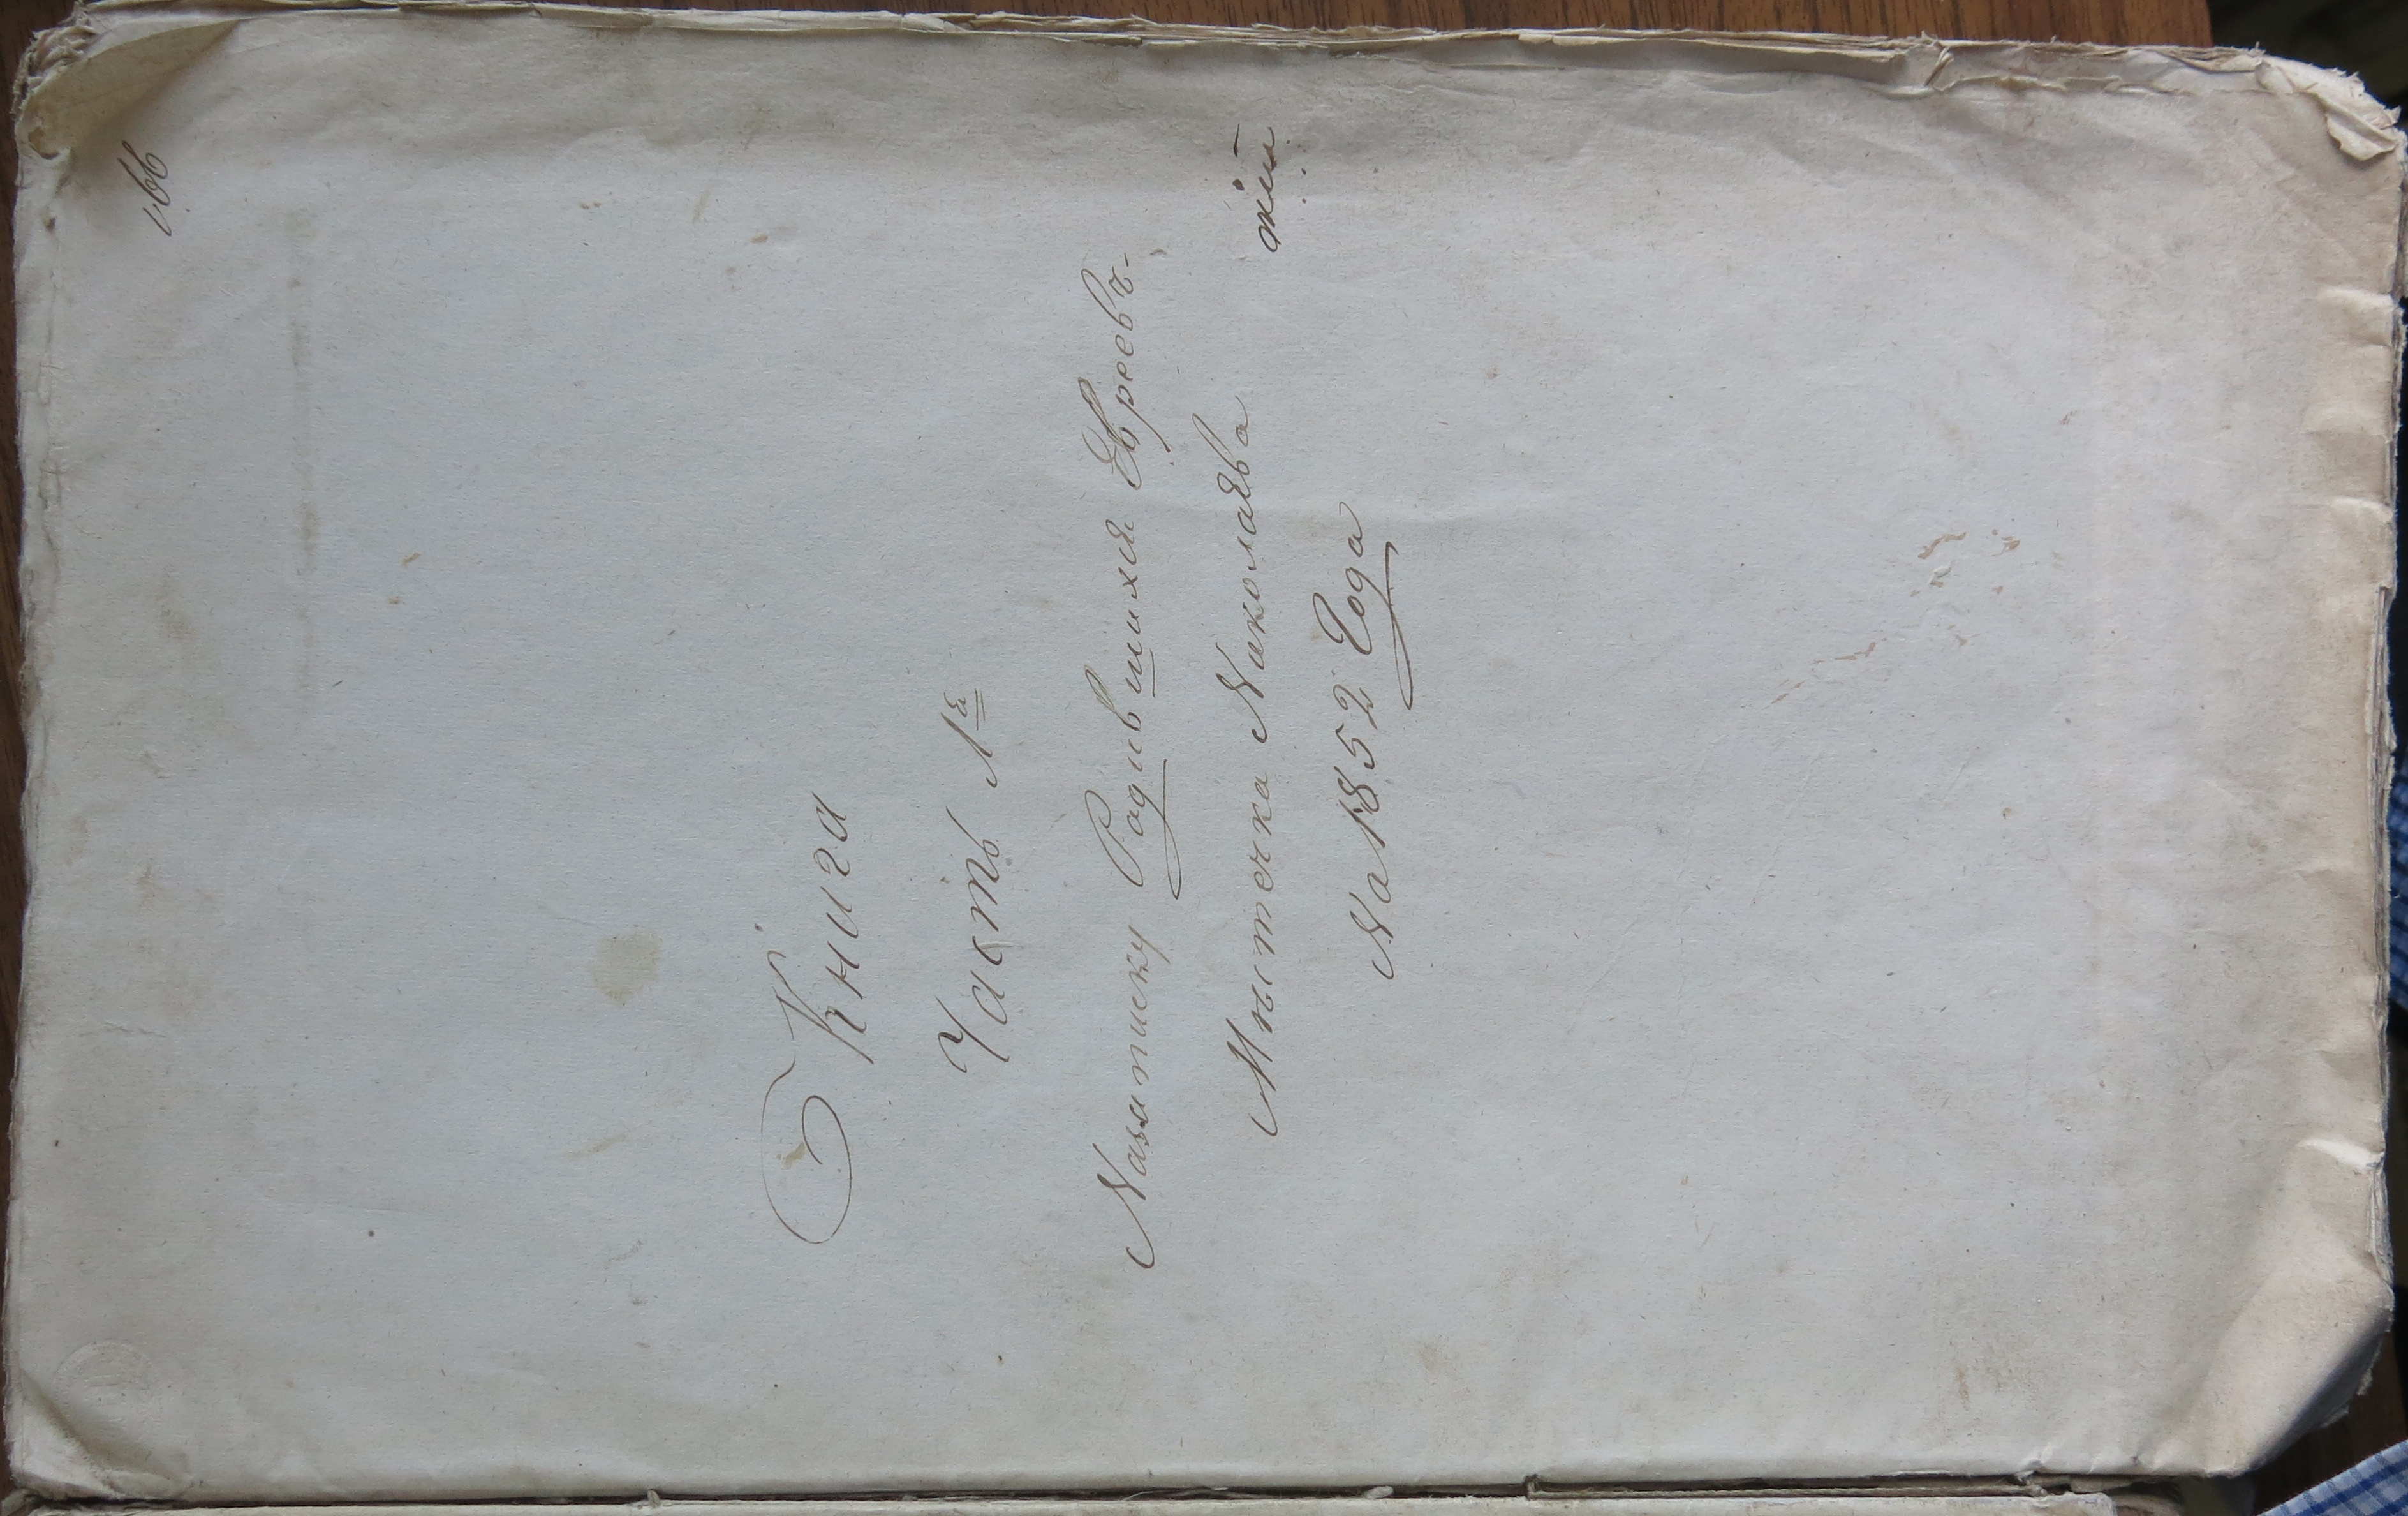 166
Книга
Часть 1я
Назаписку Родившихся Евреевъ-
Мѣстечка Николаева
На 1852 Года